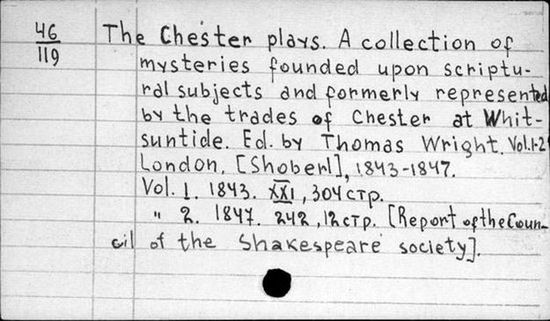 46
119
The Chester plays. A collection of
mysteries founded upon scriptu-
ral subjects and formerly represented
by the trades of Chester at Whit-
suntide. Ed. by Thomas Wright. Vol.1-2
London, [Shoberl], 1843-1847.
Vol. 1. 1843. XXI, 304 стр.
" 2. 1847. 242, 12 стр. [Report of the Coun-
cil of the Shakespeare society].